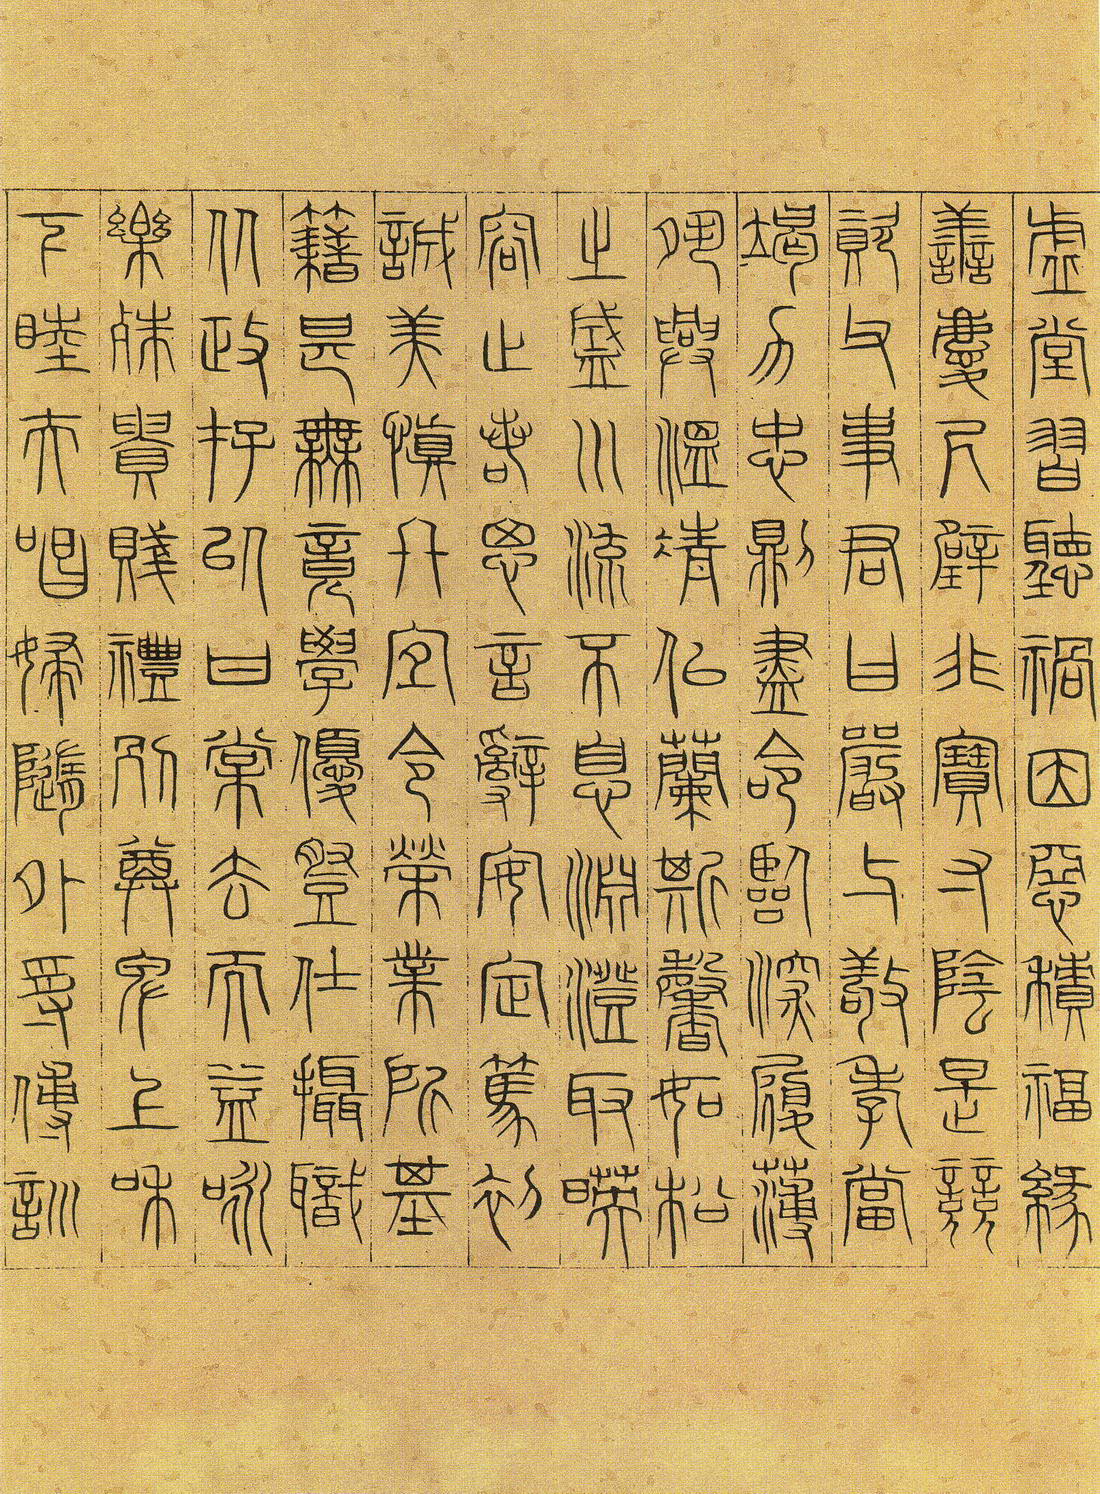 虛堂習聽禍因惡積福緣
善慶尺璧非寶寸陰是競
資父事君曰嚴与敬孝當
竭力忠則盡命臨深履薄
夙興溫凊似蘭斯馨如松
之盛川流不息淵澄取暎
容止若思言辭安定篤初
誠美慎終宜令榮業所基
籍甚無竟學優登仕攝職
从政存以甘棠去而益咏
樂殊貴賤禮別尊卑上和
下睦夫唱婦隨外受傅訓